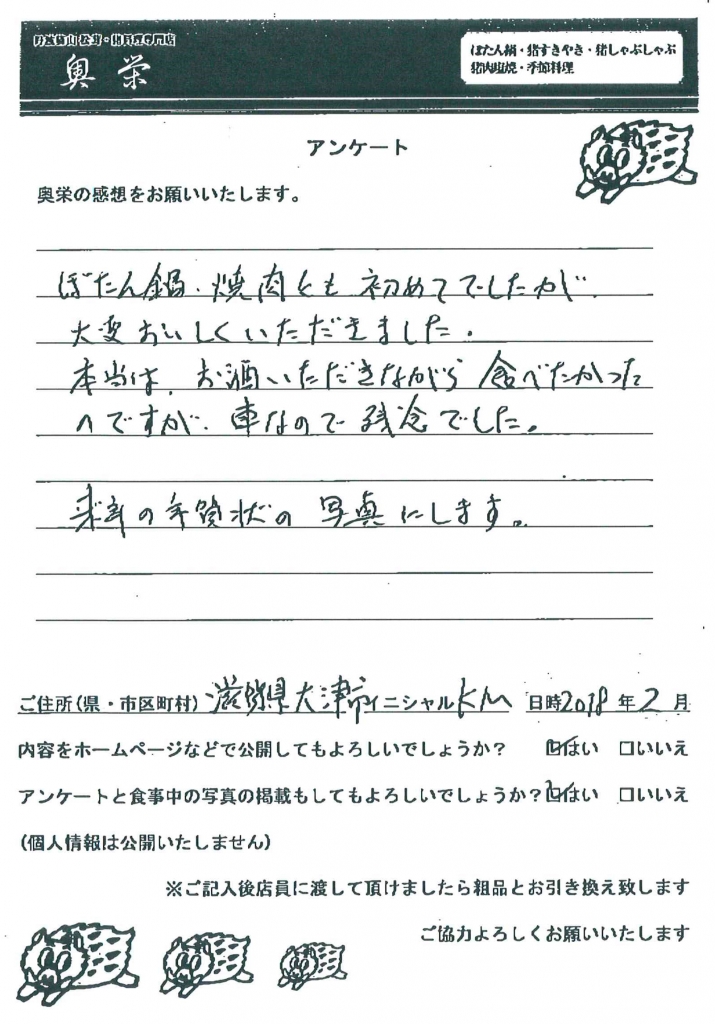 丹波篠山 松茸・猪料理専門店
奥栄
ぼたん鍋・猪すきやき・猪しゃぶしゃぶ
猪肉塩焼・季節料理
アンケート
奥栄の感想をお願いいたします。
ぼたん鍋、焼肉とも 初めてでしたが、
大変おいしくいただきました。
本当は、お酒いただきながら 食べたかった
のですが、車なので 残念でした。
来年の年賀状の 写真にします。
ご住所(県・市区町村) 滋賀県大津市 イニシャル KM 日時2018年2月
内容をホームページなどで公開してもよろしいでしょうか? ☑はい □いいえ
アンケートと食事中の写真の掲載もしてもよろしいでしょうか?☑はい □いいえ
(個人情報は公開いたしません)
※ご記入後店員に渡して頂けましたら粗品とお引き換え致します
ご協力よろしくお願いいたします